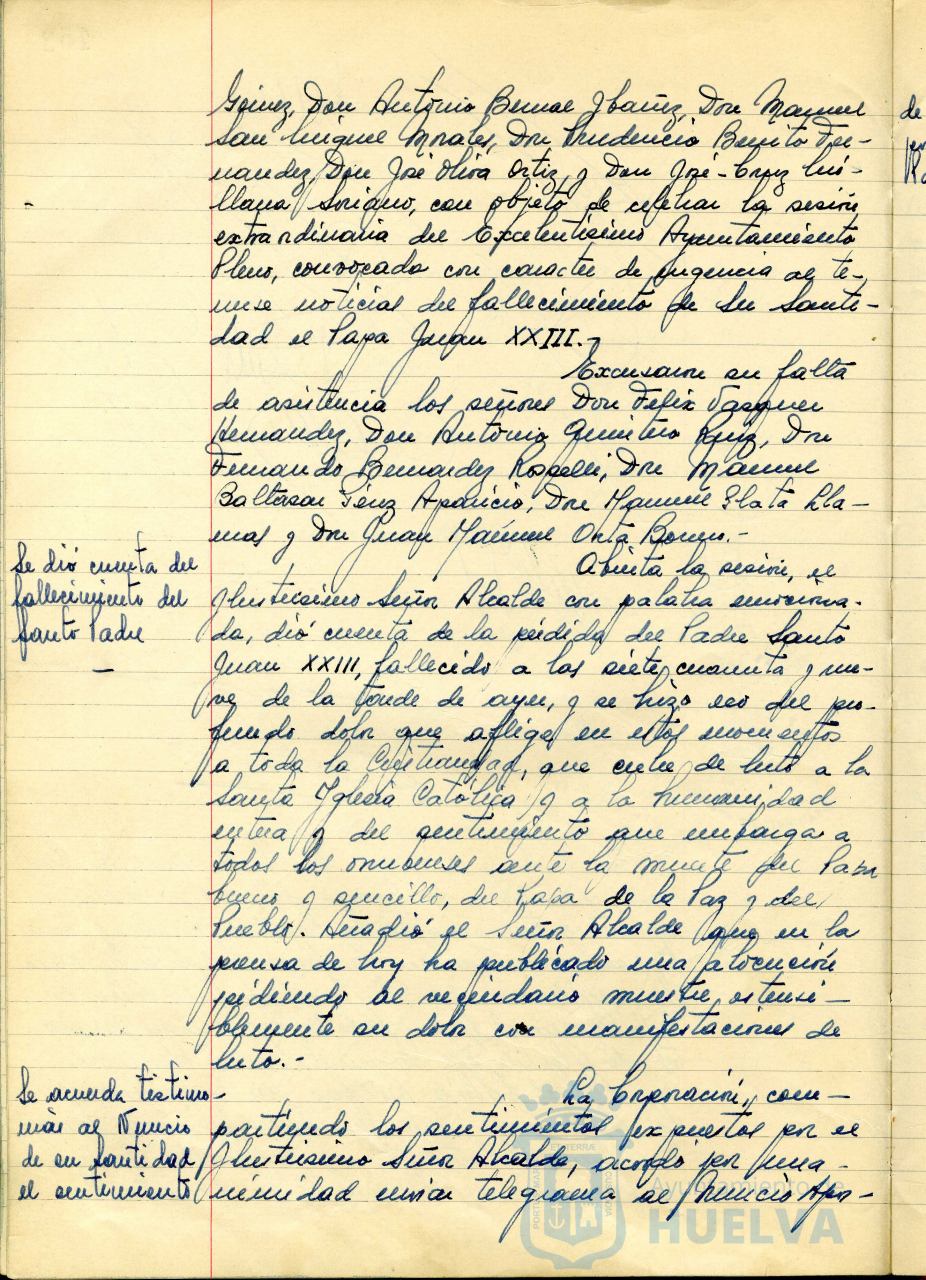 Gómez, Don Antonio Bernal Ybañez, Don Manuel
San Miguel Morales, Don Prudencio Benito Fer-
nandez, Don José Oliva Ortiz, y Don José-Cruz
llana Soriano, con objeto de celebrar la sesión
extraordinaria del Excelentísimo Ayuntamiento
Pleno, convocada con caracter de urgencia al te-
nerse noticias del fallecimiento de Su Santi-
dad el Papa Juan XXIII.-
Excusaron su falta
de asistencia los señores Don Felix Vazquez
Hernandez, Don Antonio Quintero Ruiz, Don
Fernando Bernardez Don Manuel
Baltasar Pérez Aparicio, Don Manuel Plata Lla-
mas y Don Juan Manuel Orta
Se dió cuenta del
fallecimiento del
Santo Padre
Abierta la sesión, el
Ilustrisimo Señor Alcalde con palabra emociona-
da, dió cuenta de la pérdida del Padre Santo
Juan XXIII, fallecido a las siete cuarenta y nue-
ve de la tarde de ayer, y se hizo eco del pro-
fundo dolor que aflige en estos momentos
a toda la Cristiandad, que cubre de luto a la
Santa Iglesia Católica y a la humanidad
entera y del sentimiento que embarga a
todos los onubenses ante la muerte del Papa
bueno y sencillo, del Papa de la Paz y del
Pueblo. Añadió el Señor Alcalde que en la
prensa de hoy ha publicado una alocución
pidiendo al vecindario muestre ostensi-
blemente su dolor con manifestaciones de
luto.-
Se acuerda testimo-
niar al Nuncio
de su Santidad
el sentimiento
La Corporación, com-
partiendo los sentimientos expuestos por el
Ilustrisimo Señor Alcalde, acordó por una-
nimidad enviar telegrama al Nuncio Apos-
Ayuntamiento de
HUELVA